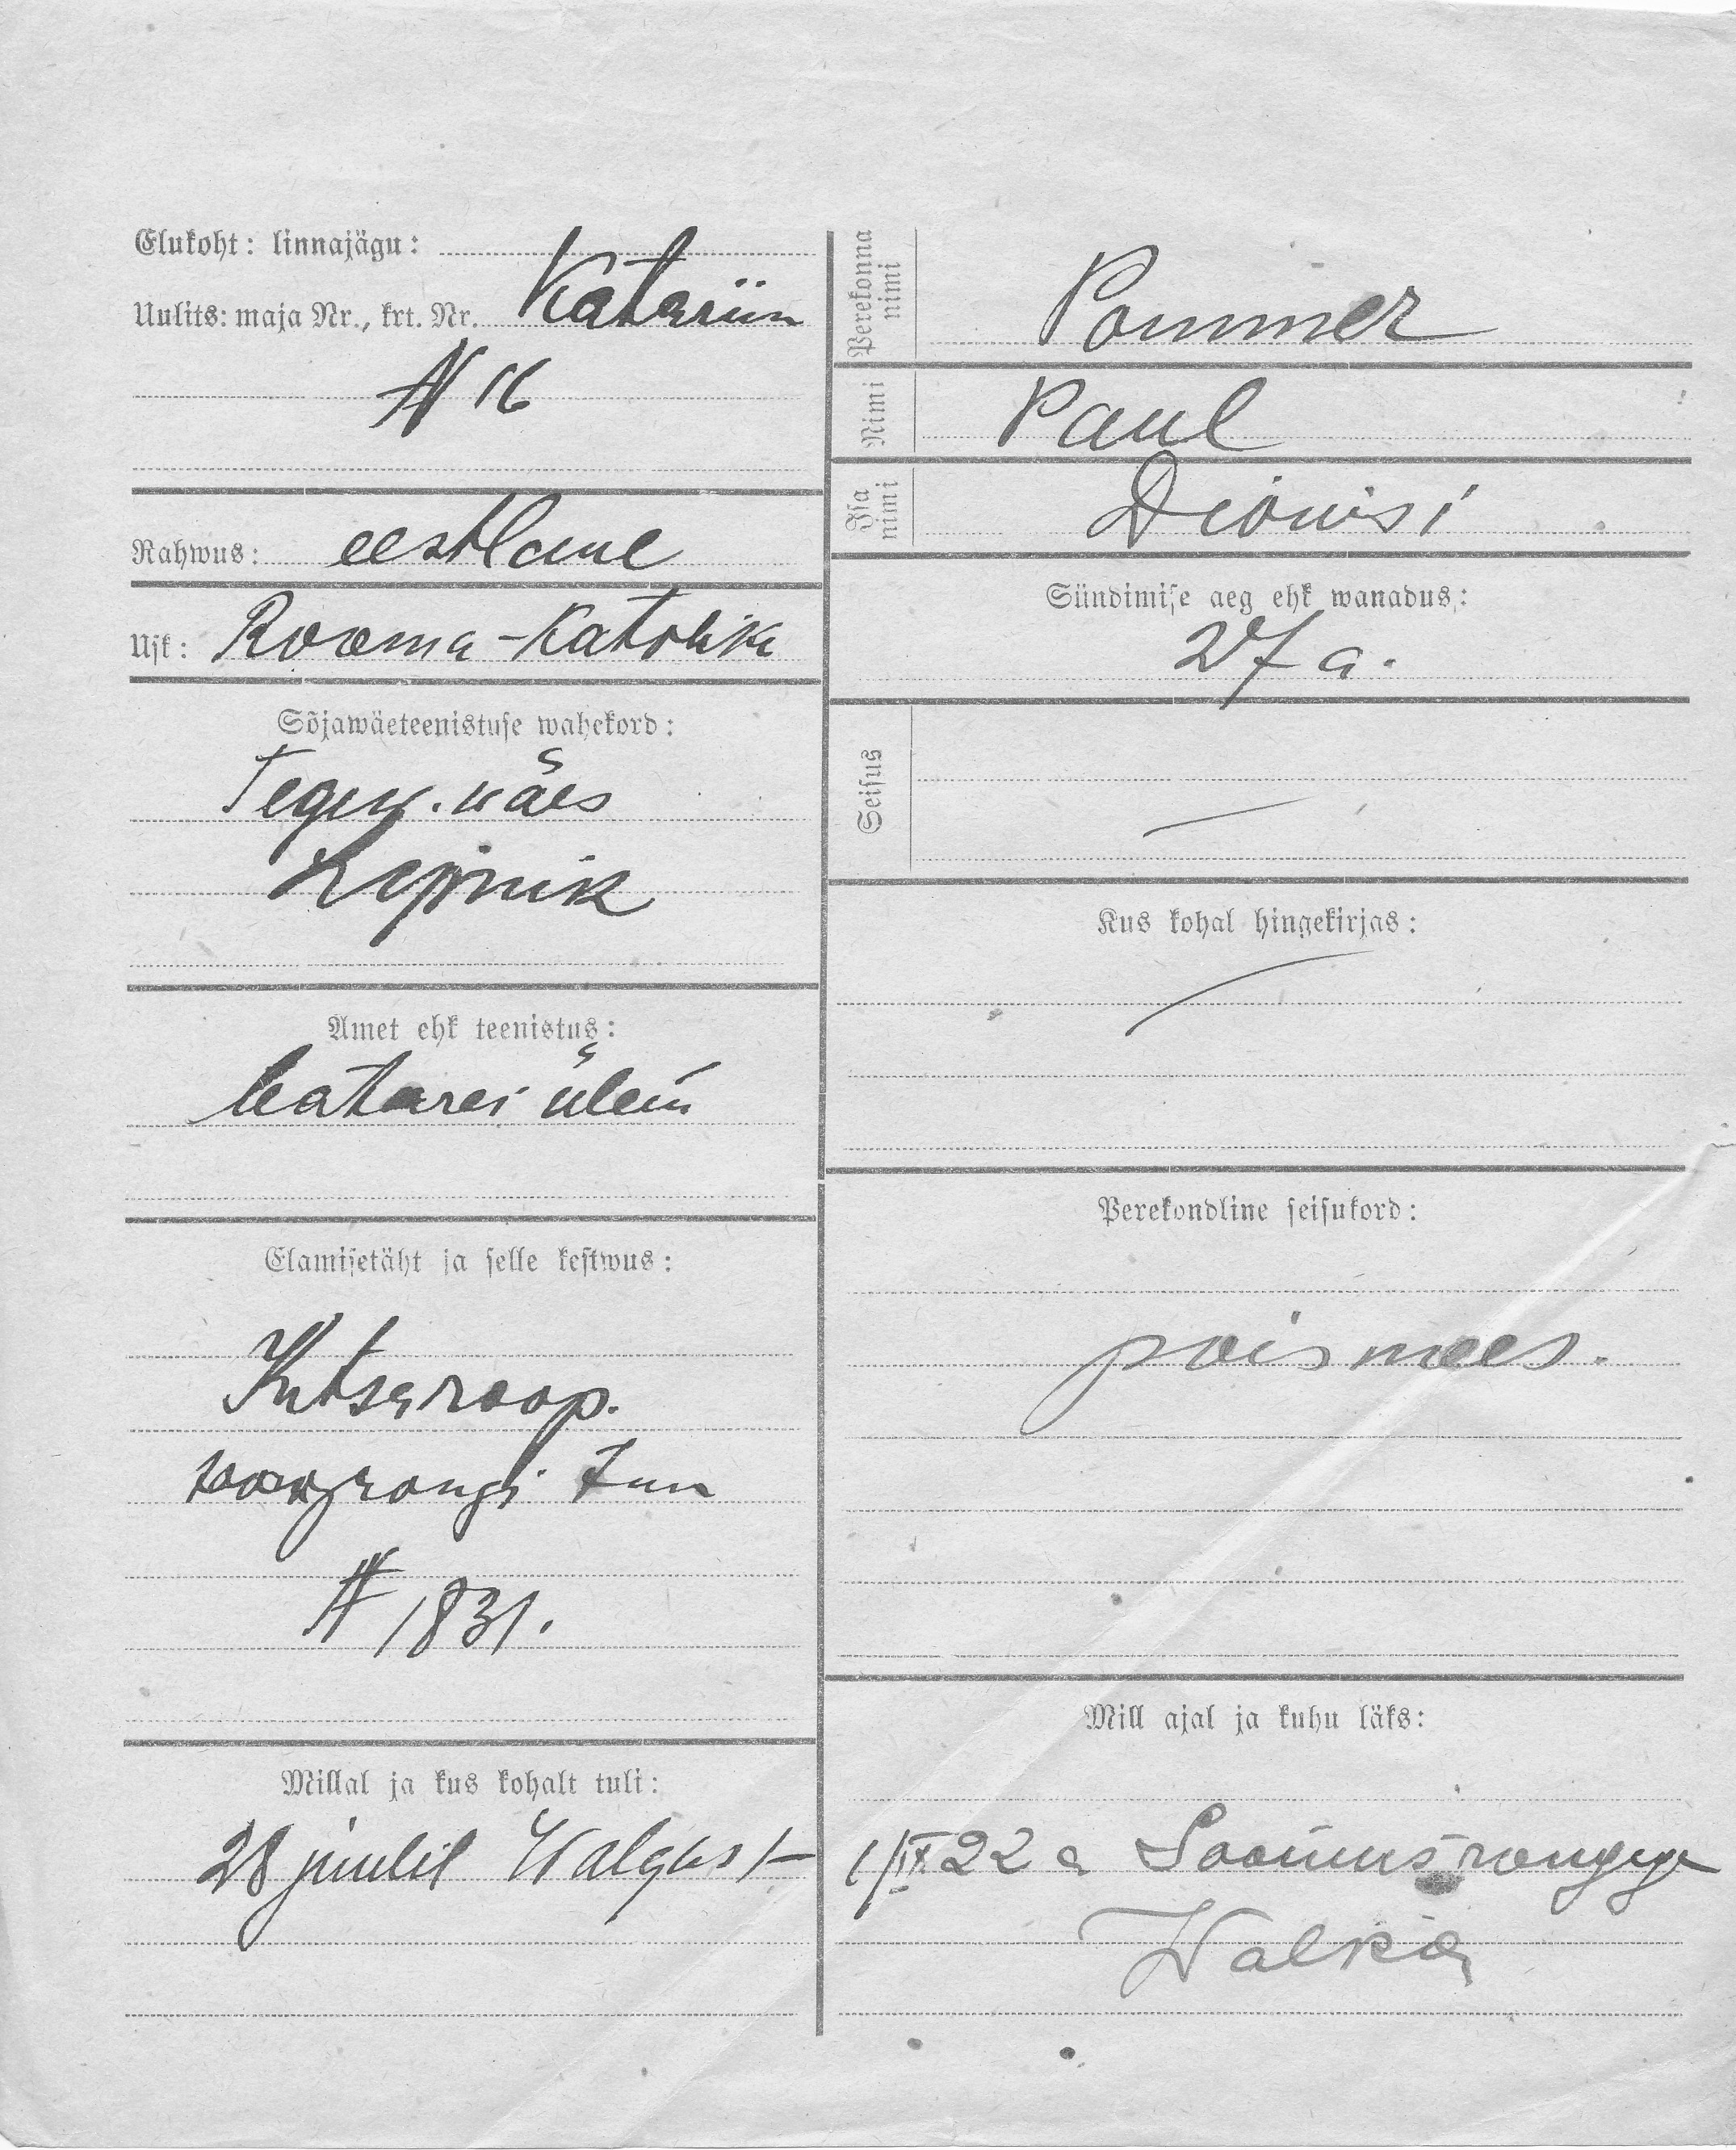 Elukoht: linnajägu:
Uulits: maja Nr., krt. Nr. Katariin
N 16
Rahwus: eestlane
Usk: Rooma-Katolika
Sõjawäeteenistuse wahekord:
Tegew. wäes
Amet ehk teenistus:
batarei ülem
Elamisetäht ja selle kestwus:
N 1831.
Millal ja kus kohalt tuli:
28 juulil Walgast
Perekonna nimi
Pommer
Nimi
Paul
Isa nimi
Dionisi
Sündimise aeg ehk wanadus:
27 a.
Seisus
Kus kohal hingekirjas:
Perekondline seisukord:
poismees.
Mill ajal ja kuhu läks:
1/IX 22 a Soomusrongiga
Walka